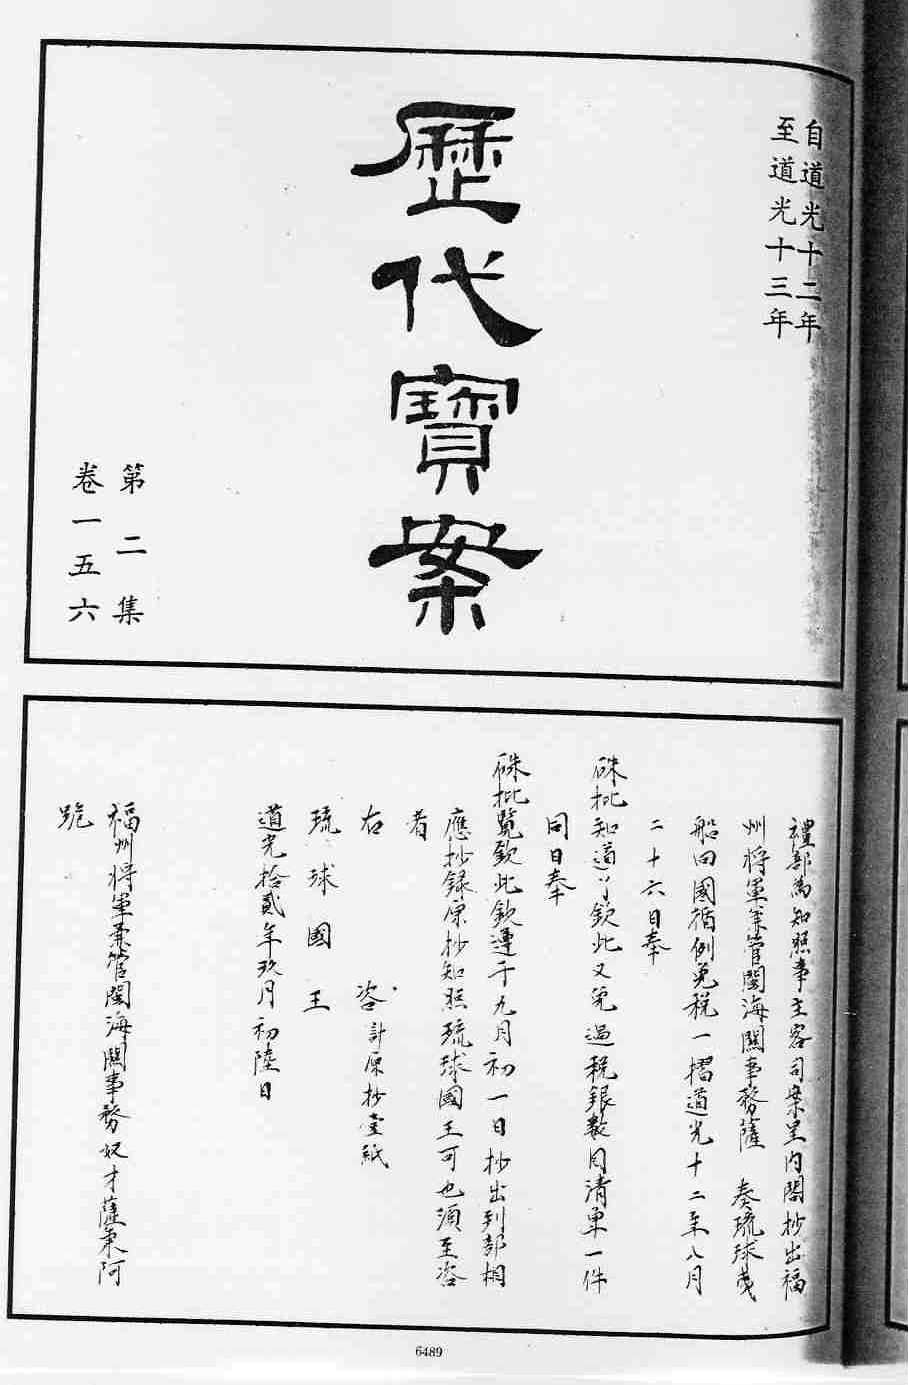 自道光十二年
至道光十三年
歷代寶案
第二集
卷一五六
禮部為知照事主客司案呈內閣抄出福
州將軍兼管閩海關事務薩 奏琉球
船回國循例免稅一摺道光十二年八月
二十六日奉
硃批知道了欽此又免過稅銀數目清單一件
同日奉
硃批覽欽此欽遵于九月初一日抄出到部相
應抄錄原抄知照琉球國王可也須至咨
者
右 咨計原抄壹紙
琉球國王
道光拾貳年玖月初陸日
福州將軍兼管閩海關事務奴才薩秉阿
跪
6489